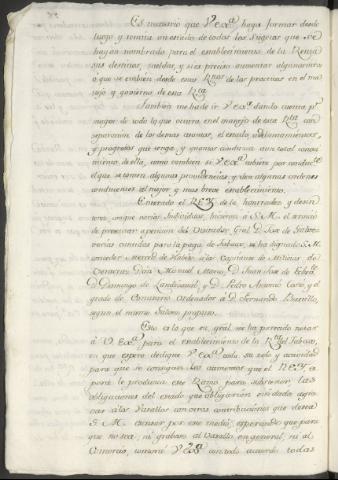 Es necesario que V. Exª. haga formar desde
luego y remita un estado de todos los Sugetos que se
hayan nombrado para el establecimiento de la Renta
sus destinos, sueldos, y si es preciso aumentar algunos otros
o que se embien desde estas Rªs. de las practicas en el ma
nejo y govierno de esta Rta.
Tambien me ha de ir V. Exª. dando cuenta pr.
mayor de todo lo que ocurra en el manejo de esta Rta. con
separacion de los demas asumtos, el estado, adelantamientos,
y progresos que tenga, y quantas conduzca a un total conoci
miento de ella, como tambien si V. Exª. por conducte
el que se tomen algunas providencias, y den algunas ordenes
conducentes al mejor, y mas breve establecimiento.
Enterado el REY de la honradez y desin
teres con que varios Individuos, hicieron a S. M. el servicio
de presentar a peticion del Visitador Gral. D. Josef de Galvez
varias cantidades para la paga de Tabacos, se ha dignado S. M.
conceder Merced de Habito a los Capitanes de Milicias de
Veracruz Dn. Manuel Maria, D. Juan Josef de Echev.
D. Domingo de Landasaval, y D. Pedro Antonio Cosio, y el
grado de Comisario Ordenador a D. Fernando Bustillo,
segun el mismo Galvez propuso.
Esto es lo que en gral. me ha parecido notar
a V. Exª. para el establecimiento de la Rta. del Tabaco,
en que espero dedique V. Exª. todo su zelo y actividad
para que se consigan los aumentos que el REY es
pera le produzca este Ramo para subvenir, las
obligaciones del estado que obligarian sin duda a gra
var a los Vasallos con otras contribuciones que desea
S. M. escusar por este medio, esperando que para
que no sea, ni graboso al Vasallo en general, ni al
Comercio, tomará V. Exª. con todo acuerdo todas